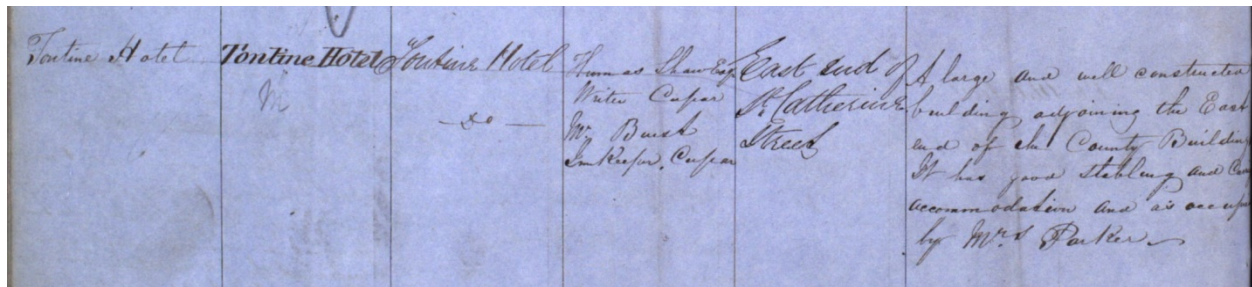 Tontine Hotel
Tontine Hotel
Tontine Hotel
— Do —
Thomas Shaw Esq
Writer Cupar
Mr. Buist
Innkeeper, Cupar
East end of
St. Catherine
Street
A large and well constructed
building adjoining the East
end of the County Building
It has good stabling and
accommodation and is occup
by Mrs Parker